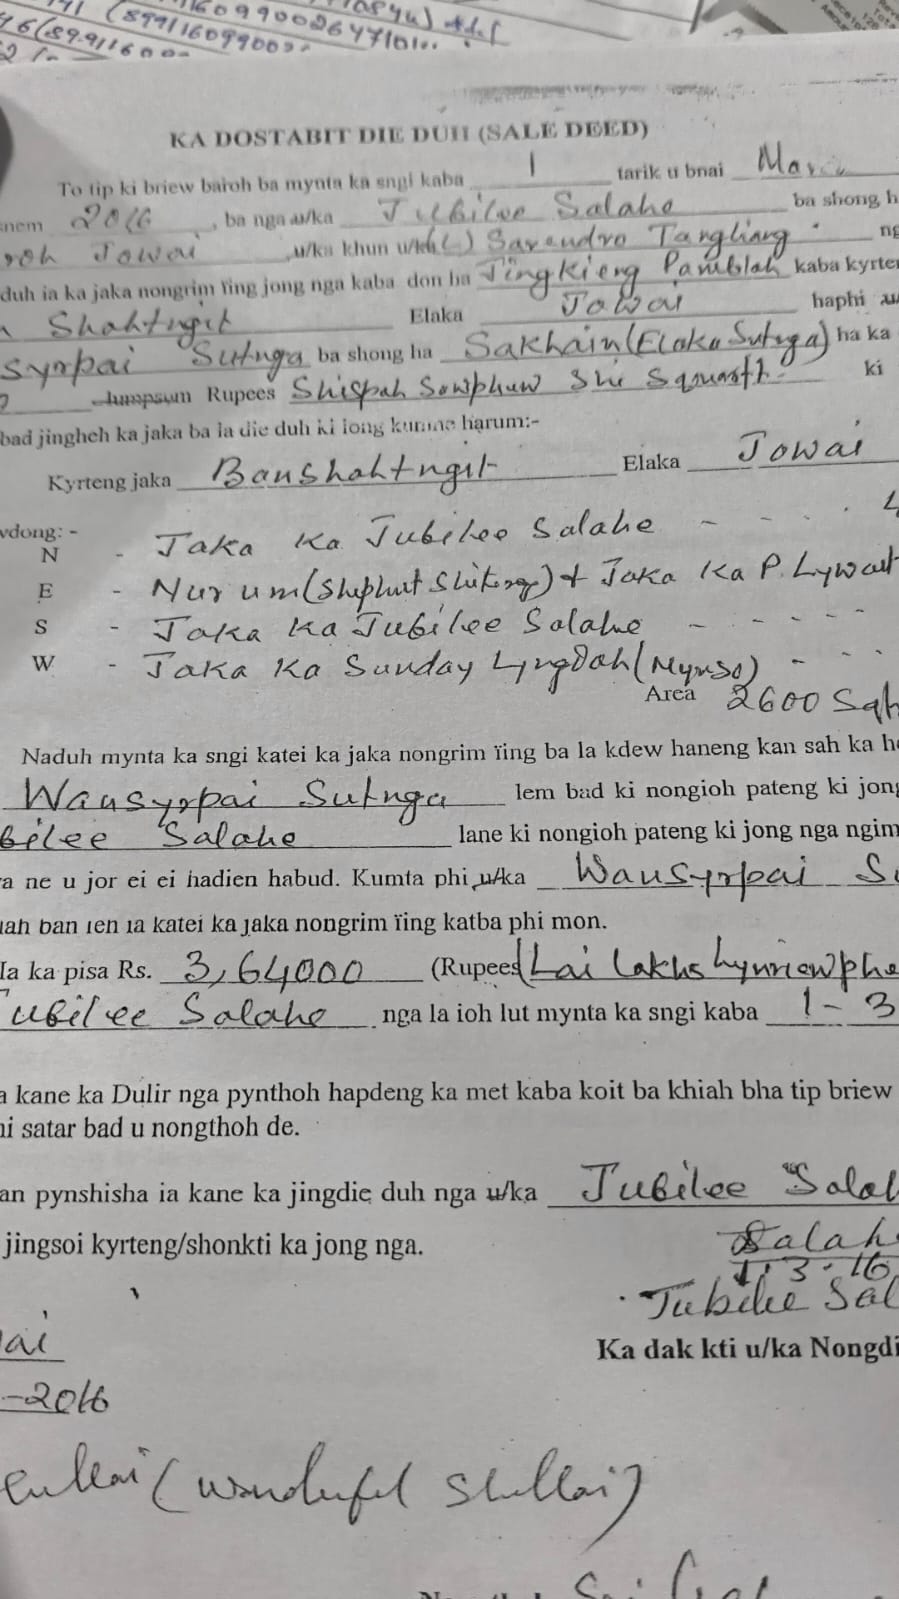 (89911609900
KA DOSTABIT DIE DUH (SALE DEED)
To tip ki briew baroh ba mynta ka sngi kaba 1 tarik u bnai
snem 2016, ba nga u/ka Jubilee Salahe ba shong h
roh Jowai, u/ka khun u/ka (L) Sarendro Tangliang ng
duh ia ka jaka nongrim ïing jong nga kaba don ha Jingkieng Pamblah kaba kyrte
Shahtngit Elaka Jowai haphi u/
syrpai Sutnga ba shong ha Sakhain (Elaka Sutnga) ha ka
Jumpsum Rupees Shispah Sawphew ki
bad jingheh ka jaka ba la die duh ki long kumne harum:-
Kyrteng jaka Banshahtngit Elaka Jowai
wdong: -
N - Jaka Ka Jubilee Salahe - - - -
E - Nur um ( ) + Jaka Ka P. Lywait
S - Jaka Ka Jubilee Salahe - - - - -
W - Jaka Ka Sunday Lyngdoh (Mynso) - - -
Area 2600 Sqft
Naduh mynta ka sngi katei ka jaka nongrim ïing ba la kdew haneng kan sah ka h
Wansyrpai Sutnga lem bad ki nongioh pateng ki jong
bilee Salahe lane ki nongioh pateng ki jong nga ngim
a ne u jor ei ei hadien habud. Kumta phi u/ka Wansyrpai S
lah ban ïen ïa katei ka jaka nongrim ïing katba phi mon.
Ia ka pisa Rs. 3,64000 (Rupees (Lai lakhs hynriewphe
Jubilee Salahe nga la ioh lut mynta ka sngi kaba 1-3
a kane ka Dulir nga pynthoh hapdeng ka met kaba koit ba khiah bha tip briew
ni satar bad u nongthoh de.
an pynshisha ia kane ka jingdie duh nga u/ka Jubilee Salah
jingsoi kyrteng/shonkti ka jong nga.
Salah
1.3.16
Jubilee Sal
Ka dak kti u/ka Nongdi
ai
-2016
(Wonderful Shullai)